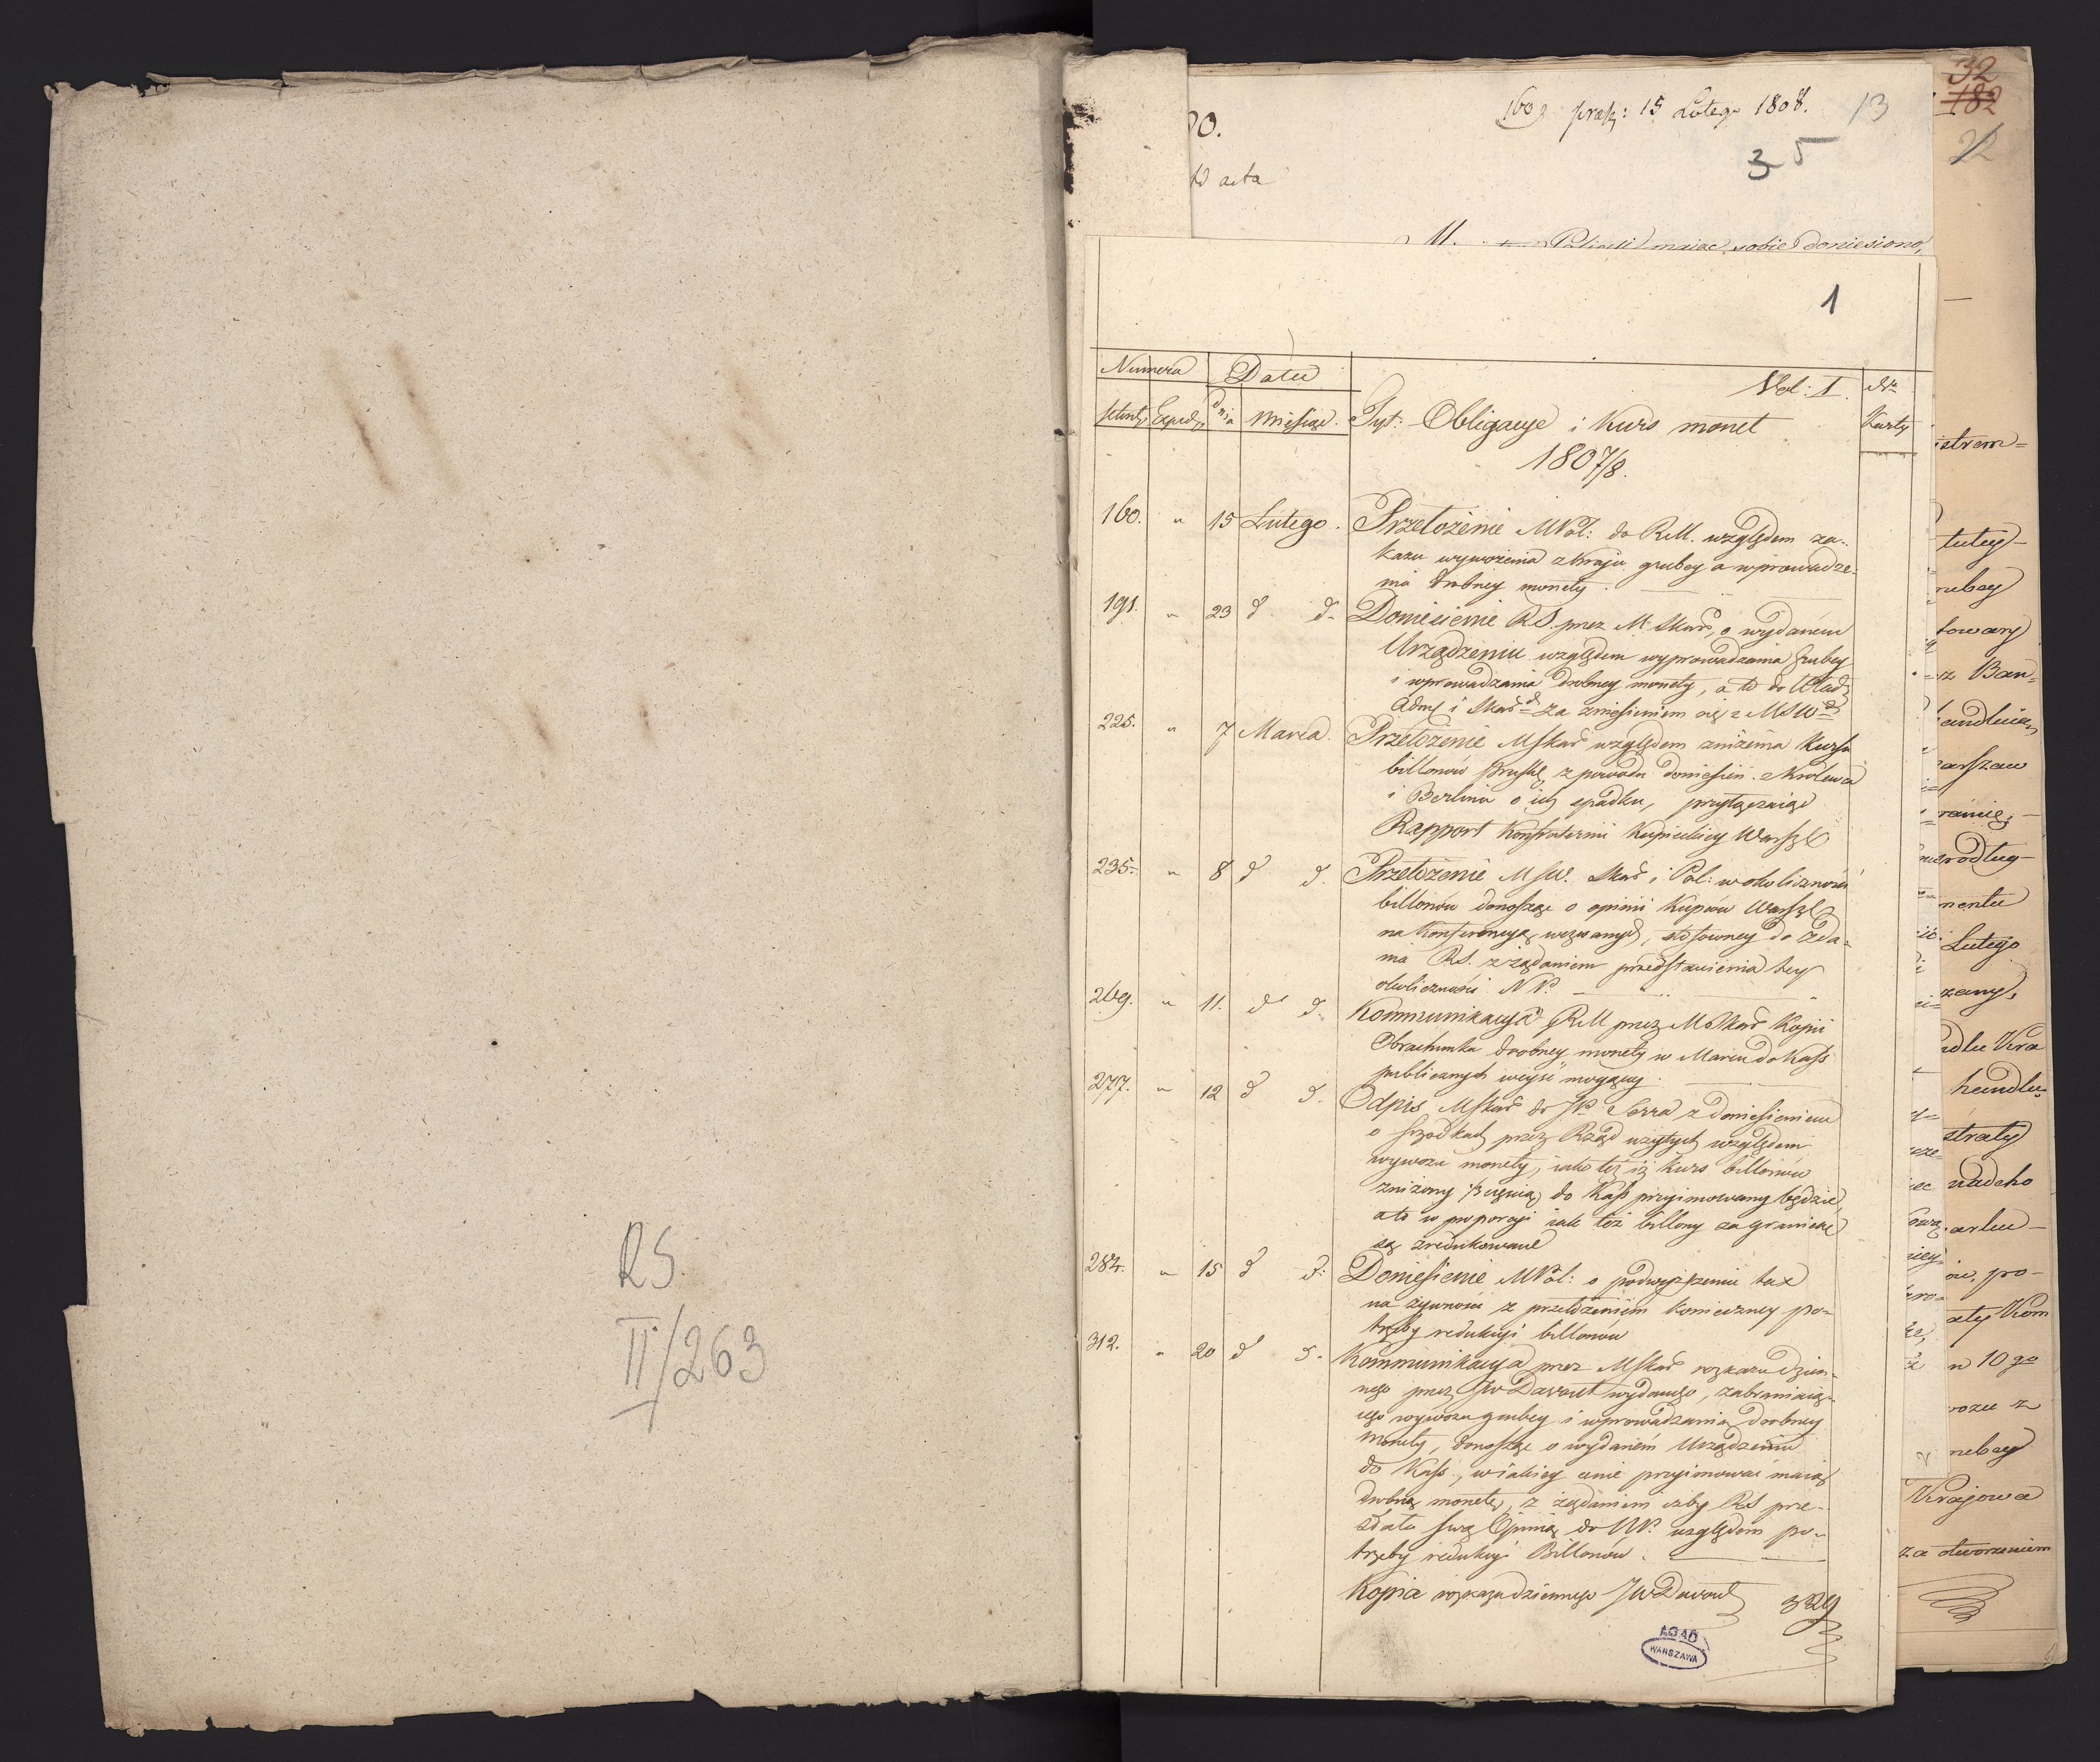 RS.
II/263
160 praes: 15 Lutego 1808. 13
3 5
ad acta
maiąc sobie doniesiono,
32
182
1
Numera Data Vol: I. Nro
Exped. dnia Miesiąc. Tyt: Obligacye i Kurs monet Karty
1807/8.
160. " 15 Lutego. Przełożenie MPol: do RM. względem za-
kazu wywożenia z kraju grubey a wprowadze-
nia drobney monety.
191. " 23 d d. Doniesienie RS. przez M. Skar, o wydanem
Urządzeniu względem wyprowadzania grubey
i wprowadzania drobney monety, a to do Władz
Adm i Skar za zniesieniem się z MSW
225. " 7 Marca. Przełożenie MSkar względem zniżenia Kursu
billonów Prusk z powodu doniesień z Królewca
i Berlina o ich spadku, przyłączaiąc
Rapport Konfraternii Kupieckiey Warsz
235. " 8 d d. Przełożenie MSW. Skar i Pol: w okoliczności
billonów donosząc o opinii Kupców Warsz
na Konferencyą wezwanych, stosowney do zda-
nia RS. z żądaniem przedstawienia tey
okoliczności NP.
269. " 11. d d. Kommunikacya RM przez MSkar Kopii
Obrachunku drobney monety w Marcu do Kass
publicznych weyść mogącey.
277. " 12 d d. Odpis MSkar do JP. Serra z doniesieniem
o srzodkach przez Rząd użytych względem
wywozu monety, iako też iż kurs billonów
zniżony do Kass przyimowany będzie,
a to w proporcyi iak też billony za granicą
są zredukowane
284. " 15 d d. Doniesienie MPol: o podwyższeniu tax
na żywności z przełożeniem konieczney po-
trzeby redukcyi billonów
312. " 20 d d. Kommunikacya przez MSkar rozkazu dzien-
nego przez JW Davout wydanego, zabraniaią-
cego wywozu grubey i wprowadzania drobney
monety, donosząc o wydaniem Urządzeniu
do Kass, w iakiey cenie przyimować maią
drobną monetę, z żądaniem ażby RS prze-
słała swą Opinią do NP. względem po-
trzeby redukcyi Billonów.
Kopia rozkazu dziennego JW Davout 329
AGAD
WARSZAWA
tutey-
towary
z Ban-
nentu
Lutego
handlu
straty
n 10 go
Krajowa
za otworzeniem